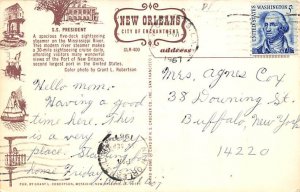 S.S. PRESIDENT
A spacious five-deck sightseeing
steamer on the Mississippi River.
This modern river steamer makes
a 30-mile sightseeing cruise daily,
affording visitors many wonderful
views of the Port of New Orleans,
second largest port in the United States.
Color photo by Grant L. Robertson
NEW ORLEANS
CITY OF ENCHANTMENT
address
WASHINGTON
5
Hello mom.
Having a good
time here. This
is a very
peaceful
home Friday
Mrs. Agnes Cox
38 Downing St.
Buffalo, New York
14220
PUB. BY GRANT L. ROBERTSON, METAIRIE, NEW ORLEANS